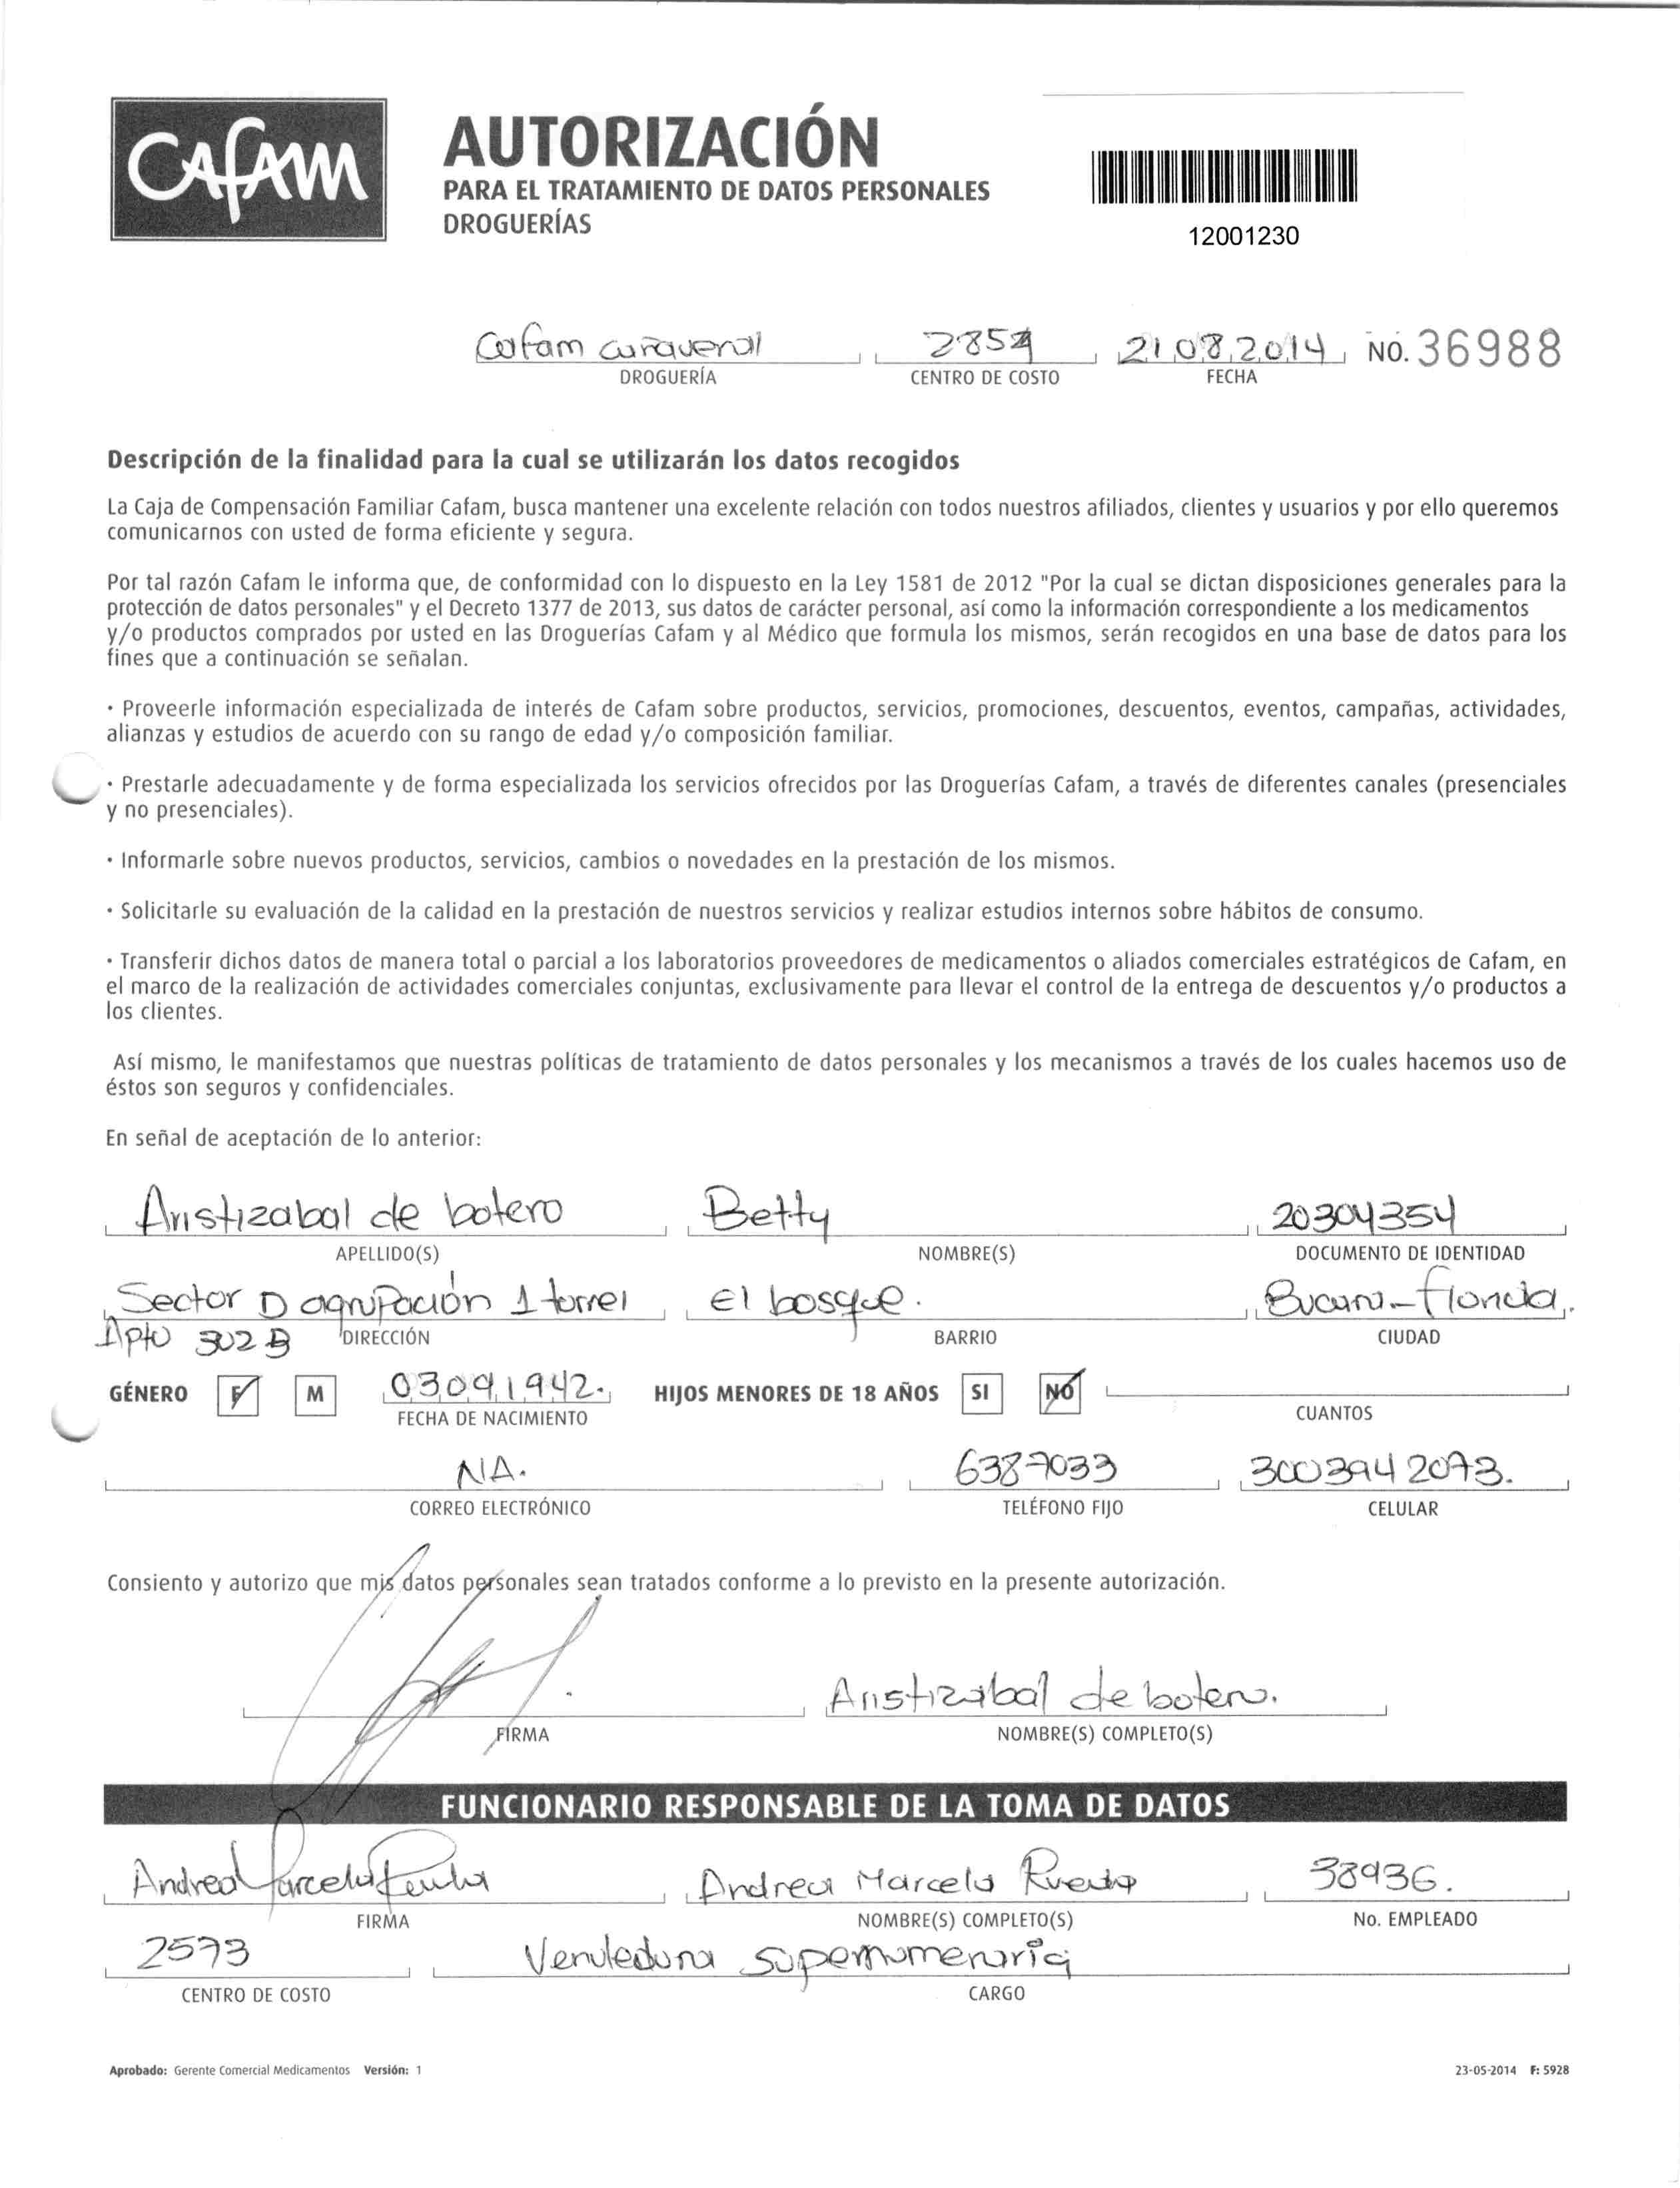 CAFAM
AUTORIZACIÓN
PARA EL TRATAMIENTO DE DATOS PERSONALES
DROGUERÍAS
12001230
Cafam cañaveral 21 08 2014 NO. 36988
DROGUERÍA CENTRO DE COSTO FECHA
Descripción de la finalidad para la cual se utilizarán los datos recogidos
La Caja de Compensación Familiar Cafam, busca mantener una excelente relación con todos nuestros afiliados, clientes y usuarios y por ello queremos
comunicarnos con usted de forma eficiente y segura.
Por tal razón Cafam le informa que, de conformidad con lo dispuesto en la Ley 1581 de 2012 "Por la cual se dictan disposiciones generales para la
protección de datos personales" y el Decreto 1377 de 2013, sus datos de carácter personal, así como la información correspondiente a los medicamentos
y/o productos comprados por usted en las Droguerías Cafam y al Médico que formula los mismos, serán recogidos en una base de datos para los
fines que a continuación se señalan.
• Proveerle información especializada de interés de Cafam sobre productos, servicios, promociones, descuentos, eventos, campañas, actividades,
alianzas y estudios de acuerdo con su rango de edad y/o composición familiar.
• Prestarle adecuadamente y de forma especializada los servicios ofrecidos por las Droguerías Cafam, a través de diferentes canales (presenciales
y no presenciales).
• Informarle sobre nuevos productos, servicios, cambios o novedades en la prestación de los mismos.
• Solicitarle su evaluación de la calidad en la prestación de nuestros servicios y realizar estudios internos sobre hábitos de consumo.
• Transferir dichos datos de manera total o parcial a los laboratorios proveedores de medicamentos o aliados comerciales estratégicos de Cafam, en
el marco de la realización de actividades comerciales conjuntas, exclusivamente para llevar el control de la entrega de descuentos y/o productos a
los clientes.
Así mismo, le manifestamos que nuestras políticas de tratamiento de datos personales y los mecanismos a través de los cuales hacemos uso de
éstos son seguros y confidenciales.
En señal de aceptación de lo anterior:
Aristizabal de botero Betty 20304354
APELLIDO(S) NOMBRE(S) DOCUMENTO DE IDENTIDAD
Sector D agrupación 1 torre1 el bosque. Bucara-florida.
Apto 302 B DIRECCIÓN BARRIO CIUDAD
GÉNERO F M 03 09 1942. HIJOS MENORES DE 18 AÑOS SI NO
FECHA DE NACIMIENTO CUANTOS
NA. 6387033 3003942073.
CORREO ELECTRÓNICO TELÉFONO FIJO CELULAR
Consiento y autorizo que mis datos personales sean tratados conforme a lo previsto en la presente autorización.
Aristizabal de botero.
FIRMA NOMBRE(S) COMPLETO(S)
FUNCIONARIO RESPONSABLE DE LA TOMA DE DATOS
Andrea Marcela Rueda Andrea Marcela Rueda 38936.
FIRMA NOMBRE(S) COMPLETO(S) No. EMPLEADO
2573 Vendedora supernumeraria
CENTRO DE COSTO CARGO
Aprobado: Gerente Comercial Medicamentos Versión: 1 23-05-2014 F: 5928